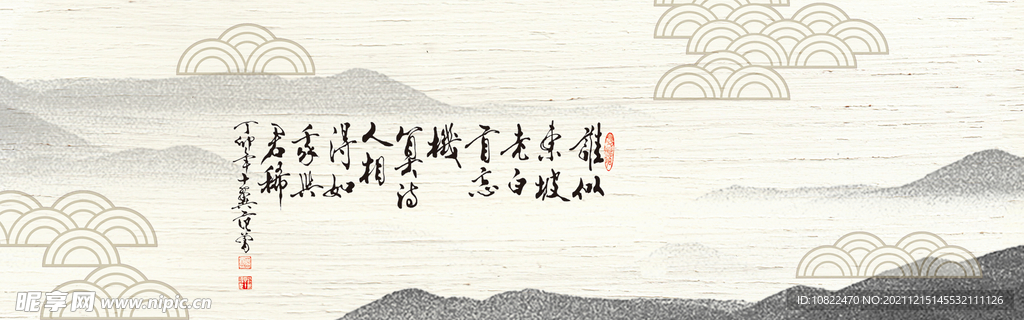 誰似
東坡
老白
首忘
機
算詩
人相
得如
我與
君稀
丁卯年十翼范曾
昵享网 www.nipic.cn
ID:10822470 NO:20211215145532111126